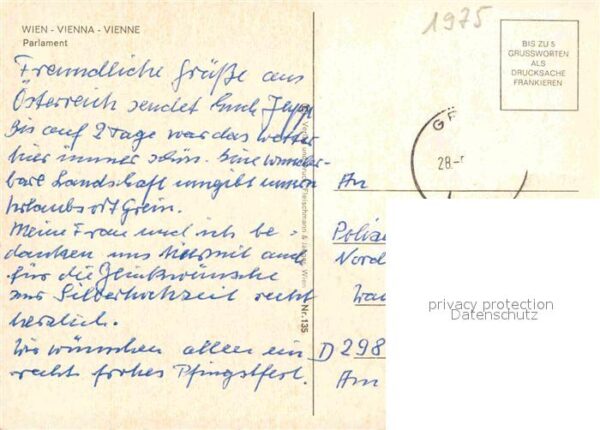 WIEN - VIENNA - VIENNE
Parlament
Freundliche Grüße aus
Österreich sendet Euch
Bis auf 2 Tage war das Wetter
hier immer schön. Eine wunder-
bare Landschaft umgibt unsern
Urlaubsort Grein.
Meine Frau und ich be-
danken uns hiermit auch
für die Glückwünsche
zur Silberhochzeit recht
herzlich.
Wir wünschen allen ein
recht frohes Pfingstfest.
Nr. 135
1975
BIS ZU 5
GRUSSWORTEN
ALS
DRUCKSACHE
FRANKIEREN
28.-
An
Nord
D 298
Am
privacy protection
Datenschutz